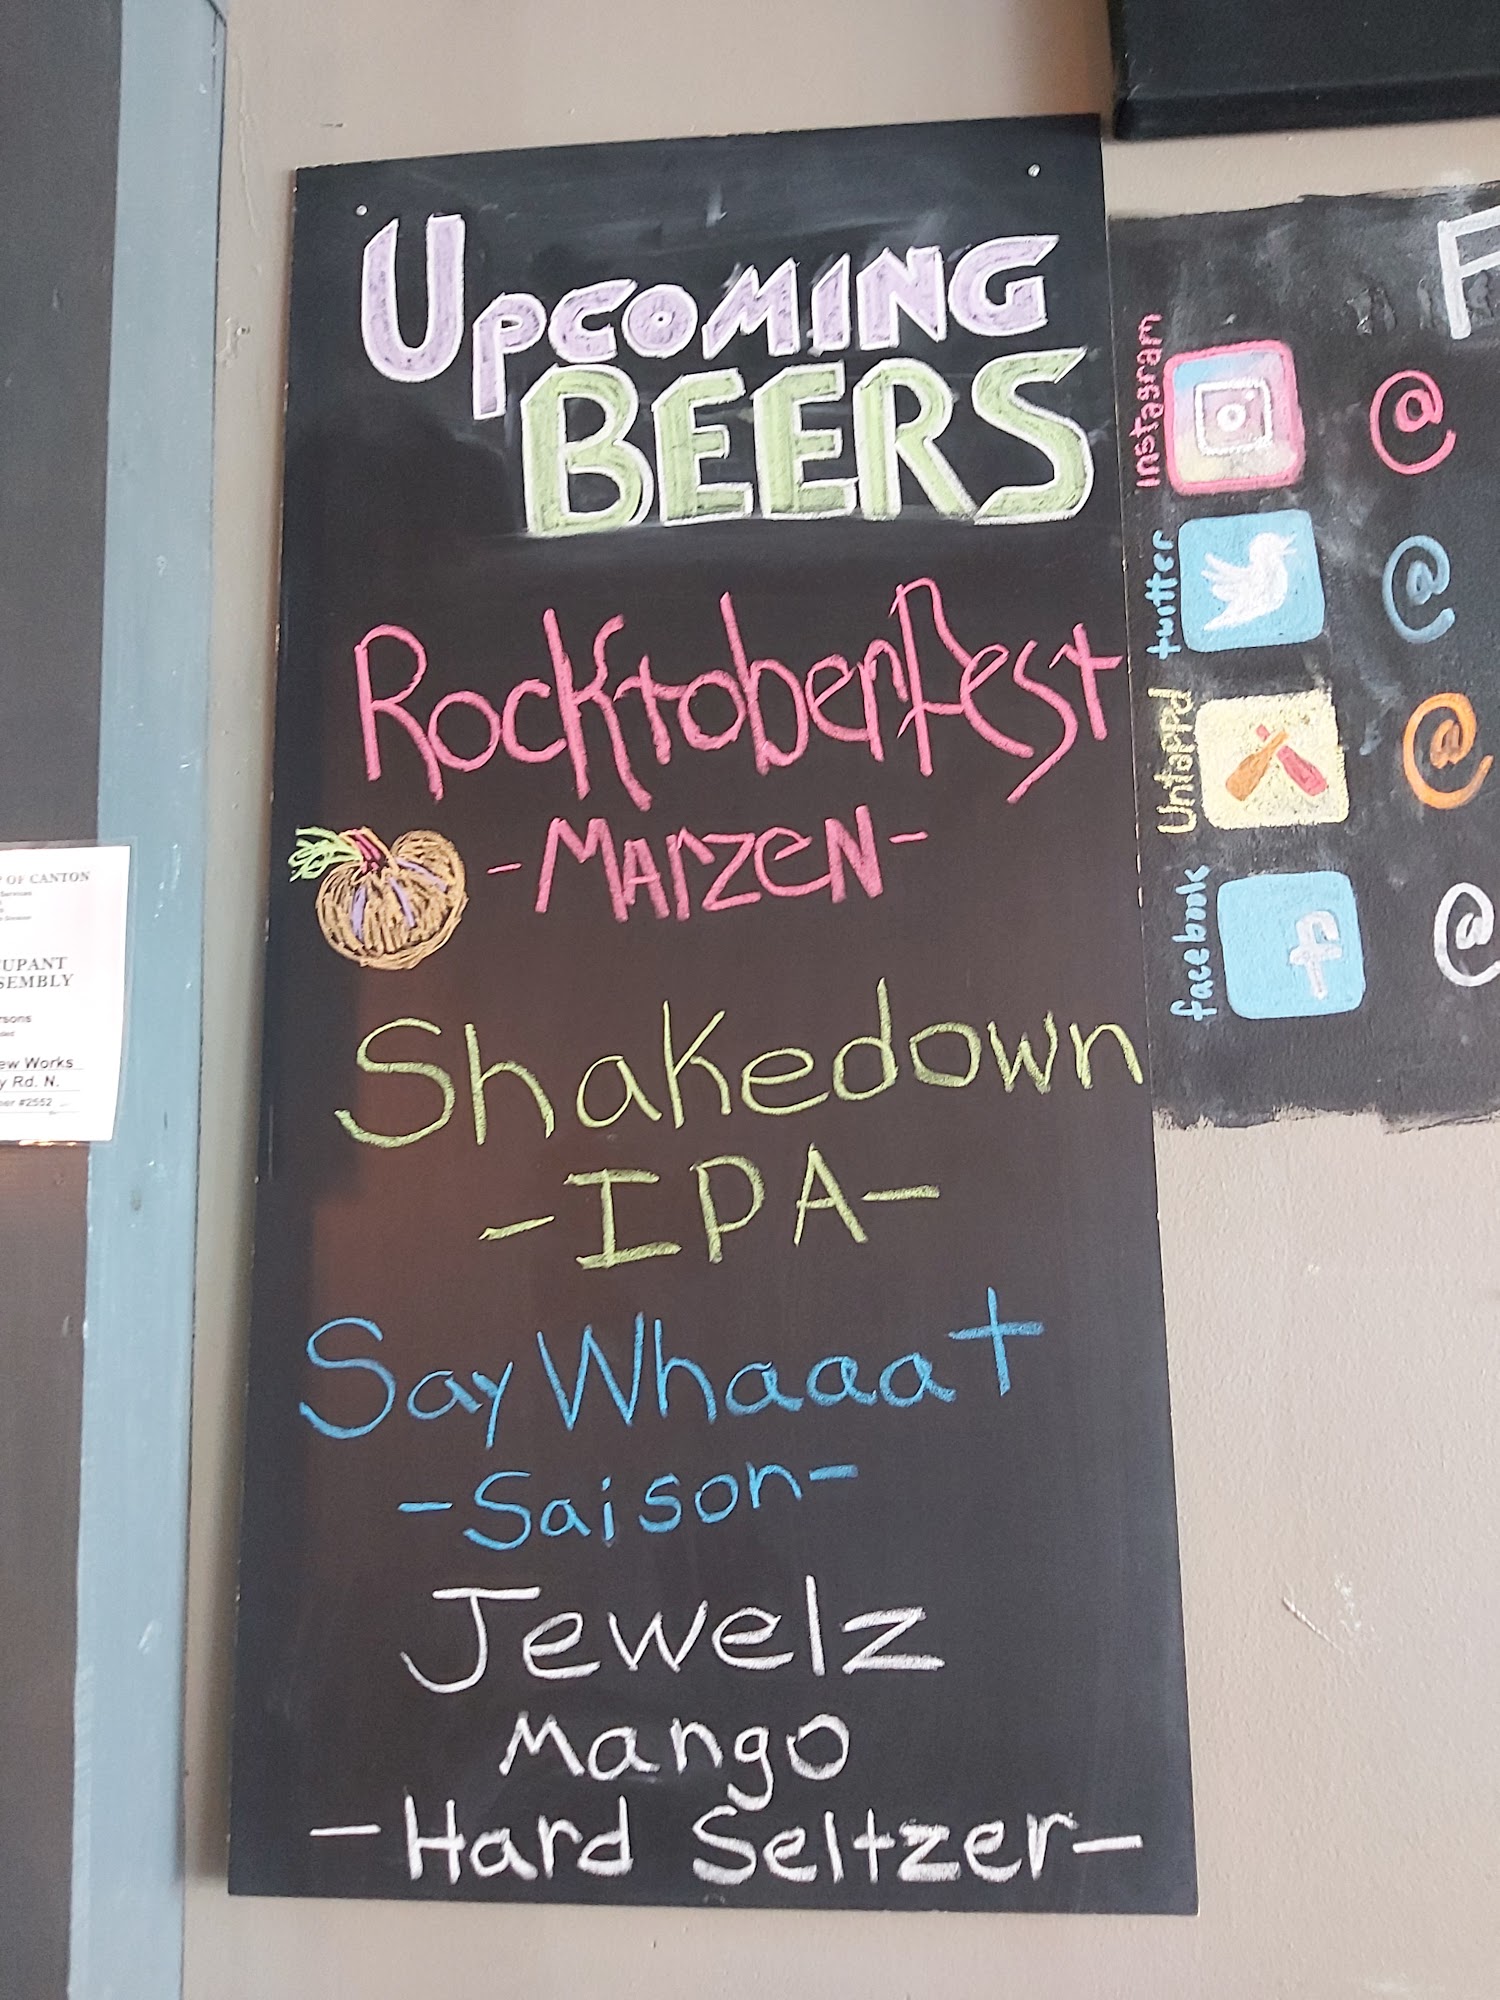 UPCOMING
BEERS
RocktoberFest
-MArzeN-
Shakedown
-IPA-
Say Whaaat
-Saison-
Jewelz
Mango
-Hard Seltzer-
Instagram
@
twitter
@
Untappd
@
facebook
f
@
F
OF CANTON
Services
UPANT
SEMBLY
rsons
ew Works
y Rd. N.
#2552